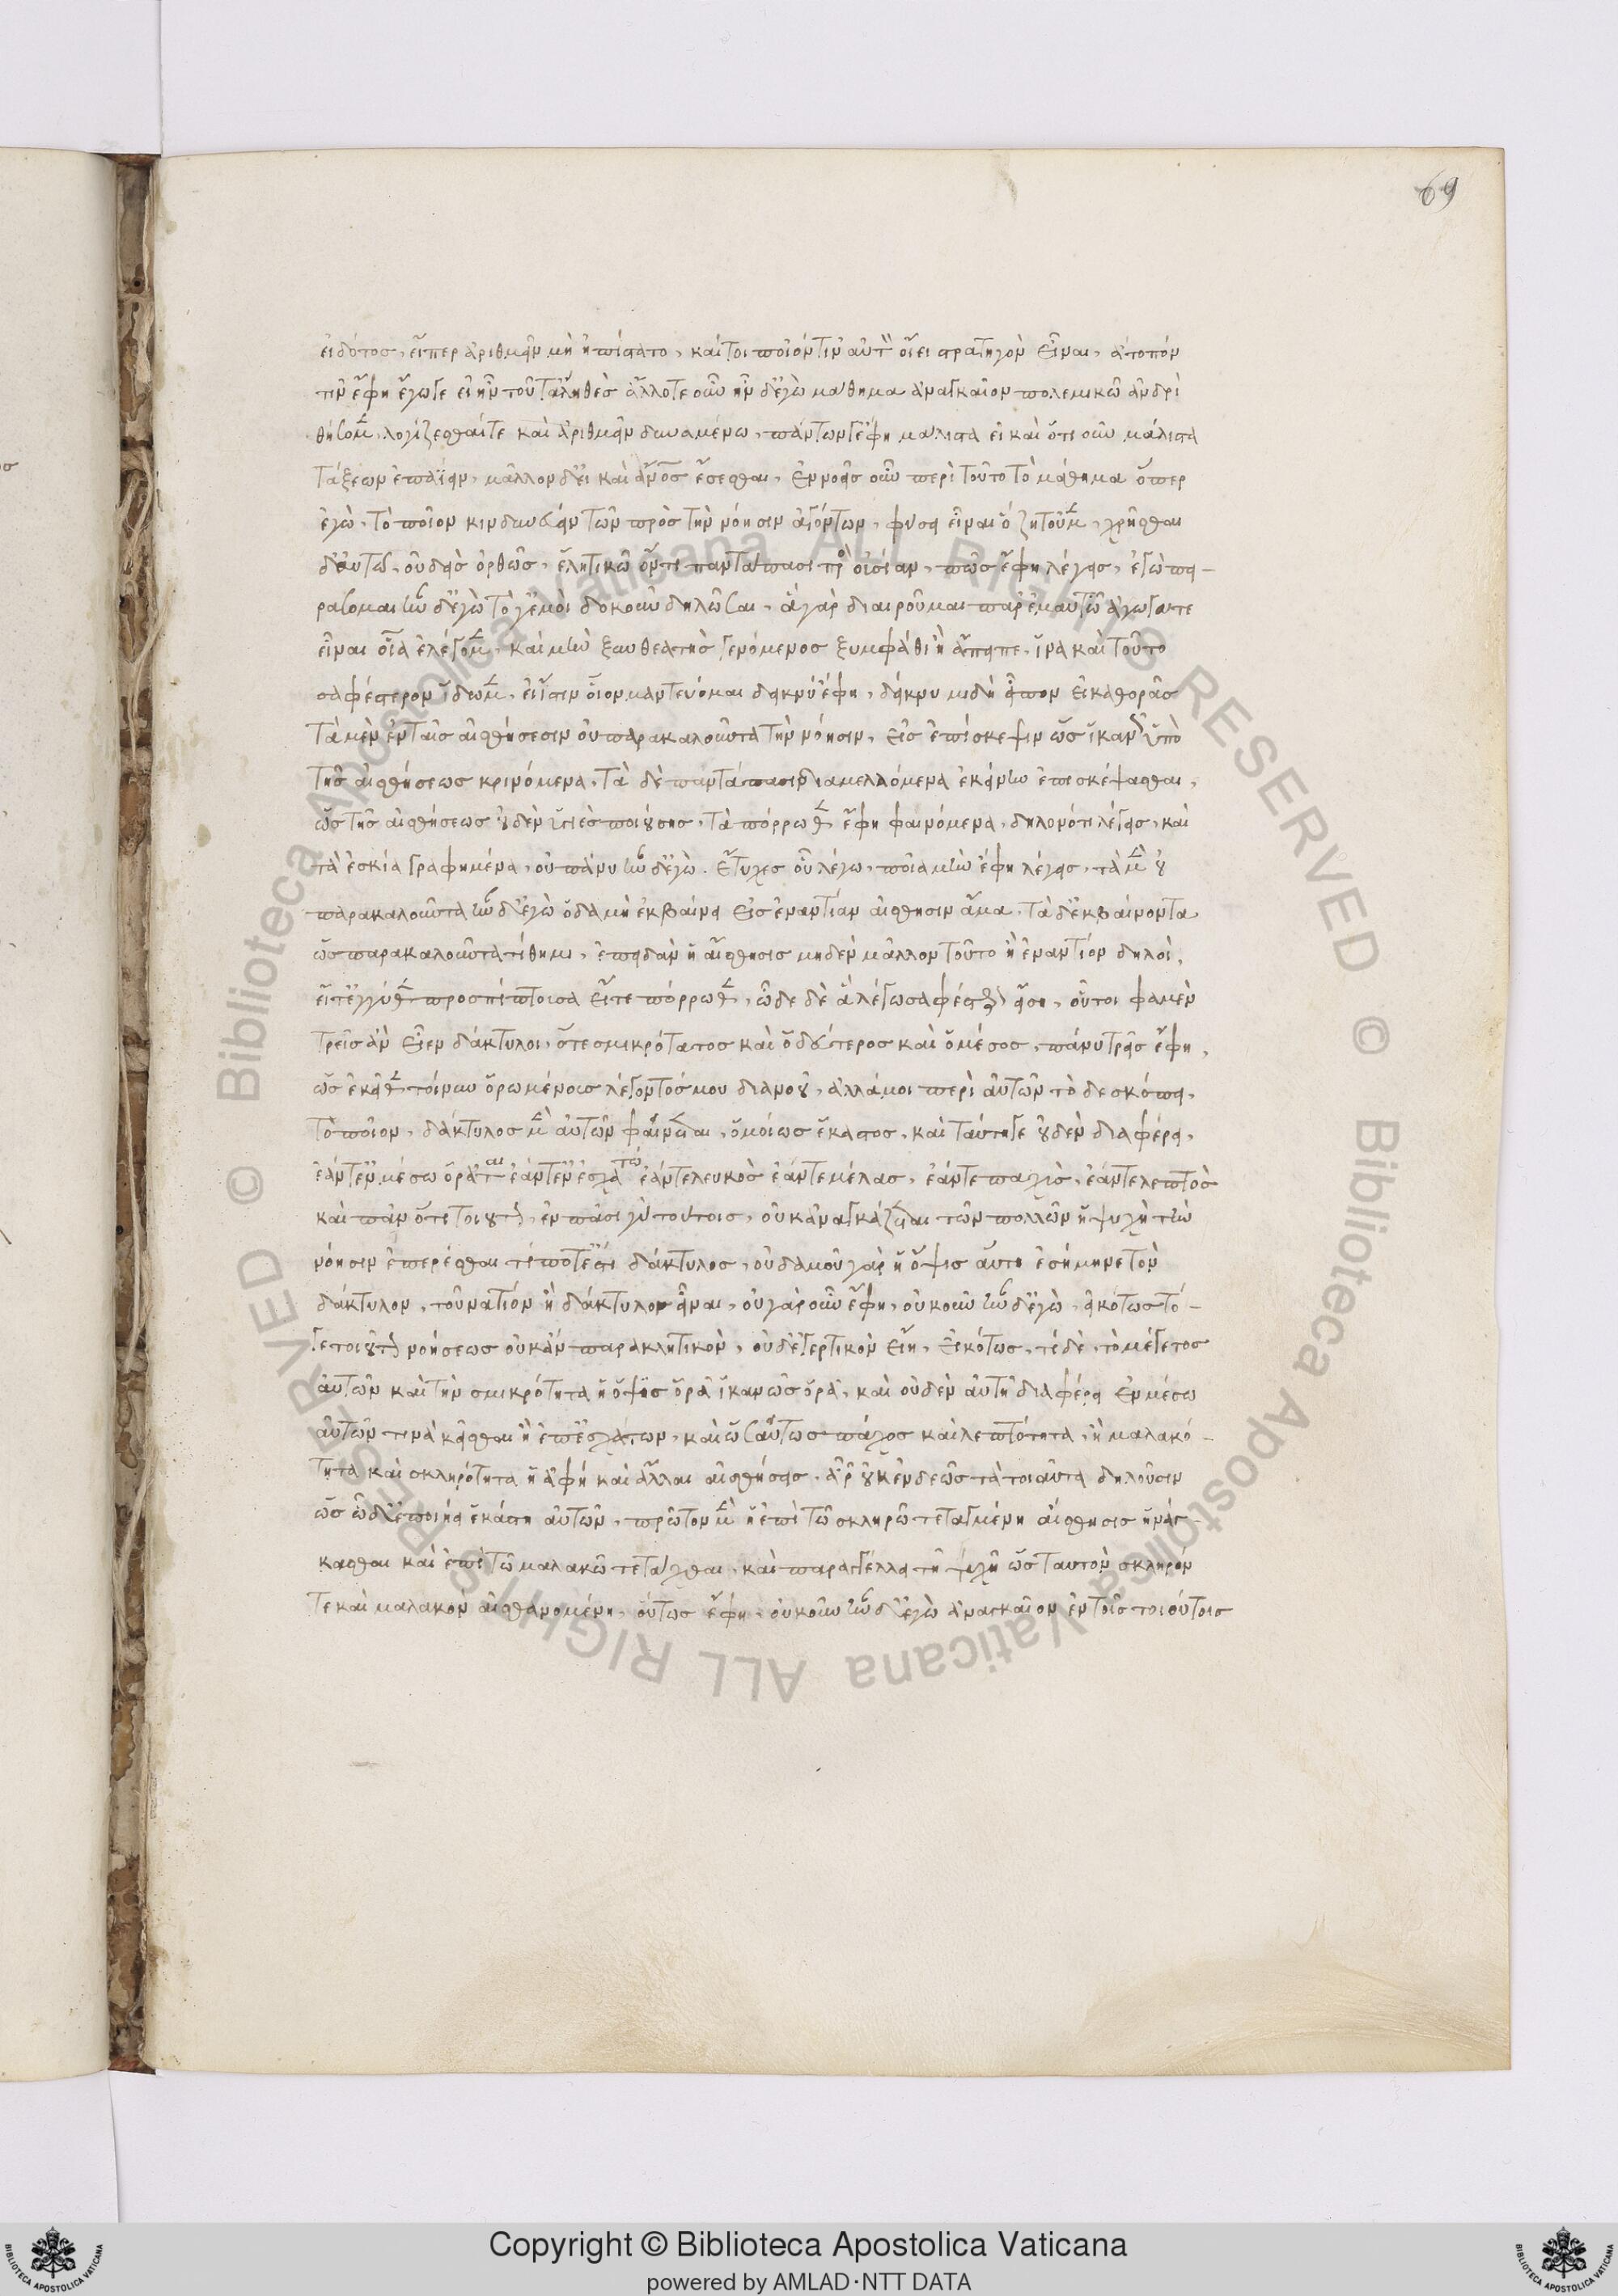 69
εἰδότος, εἴπερ ἀριθμεῖν μὴ ἠπίστατο, καίτοι ποῖόν τιν αὐτὸν οἴει στρατηγὸν εἶναι, ἄτοπόν
τιν ἔφη ἔγωγε εἰ ἦν τοῦτ ἀληθὲς ἄλλο τε οὖν ἦν δ ἐγὼ μάθημα ἀναγκαῖον πολεμικῶ ἀνδρὶ
θήσομεν, λογίζεσθαί τε καὶ ἀριθμεῖν δυναμένω, πάντων γ ἔφη μάλιστα εἰ καὶ ὁτιοῦν μάλιστα
τάξεων ἐπαΐειν, μᾶλλον δ εἰ καὶ ἄνος ἔσεσθαι, ἐννοεῖς οὖν περὶ τοῦτο τὸ μάθημα ὅπερ
ἐγὼ, τὸ ποῖον κινδυνεύειν τῶν πρὸς τὴν νόησιν ἀγόντων, φύσει εἶναι ὃ ζητοῦμεν, χρῆσθαι
δ αὐτῶ, οὐδεὶς ὀρθῶς, ἑλητικῶ ὄντι παντάπασι πρὸς οὐσίαν, πῶς ἔφη λέγεις, ἐγὼ πει-
ράσομαι ἦν δ ἐγὼ τό γ ἐμοὶ δοκοῦν δηλῶσαι, ἃ γὰρ διαιροῦμαι παρ ἐμαυτῶ ἀγωγά τε
εἶναι οἷα ἐλέγομεν, καὶ μὴν ξυνθεατὴς γενόμενος ξυμφάθι ἢ ἄπειπε, ἵνα καὶ τοῦτο
σαφέστερον ἴδωμεν, εἰ ἔστιν οἷον μαντεύομαι δείκνυ ἔφη, δείκνυμι δὴ εἶπον εἰ καθορᾶς
τὰ μὲν ἐν ταῖς αἰσθήσεσιν οὐ παρακαλοῦντα τὴν νόησιν, εἰς ἐπίσκεψιν ὡς ἱκανῶς ὑπὸ
τῆς αἰσθήσεως κρινόμενα, τὰ δὲ παντάπασι διαμελλόμενα ἐκείνην ἐπισκέψασθαι,
ὡς τῆς αἰσθήσεως οὐδὲν ὑγιὲς ποιούσης, τὰ πόρρωθεν ἔφη φαινόμενα, δηλονότι λέγεις, καὶ
τὰ ἐσκιαγραφημένα, οὐ πάνυ ἦν δ ἐγὼ. ἔτυχες οὗ λέγω, ποῖα μὴν ἔφη λέγεις, τὰ μὲν οὐ
παρακαλοῦντα ἦν δ ἐγὼ ὅσα μὴ ἐκβαίνει εἰς ἐναντίαν αἴσθησιν ἅμα, τὰ δ ἐκβαίνοντα
ὡς παρακαλοῦντα τίθημι, ἐπειδὰν ἡ αἴσθησις μηδὲν μᾶλλον τοῦτο ἢ ἐναντίον δηλοῖ,
εἴτ ἐγγύθεν προσπίπτουσα εἴτε πόρρωθεν, ὧδε δὲ ἃ λέγω σαφέστερον εἴση, οὗτοι φαμὲν
τρεῖς ἂν εἶεν δάκτυλοι, ὅτε σμικρότατος καὶ ὁ δεύτερος καὶ ὁ μέσος, πάνυ γ εἰς ἔφη,
ὡς ἐγγύθεν τοίνυν ὁρωμένοις λέγοντός μου διανοοῦ, ἀλλά μοι περὶ αὐτῶν τὸ δε σκόπει,
τὸ ποῖον, δάκτυλος μὲν αὐτῶν φαίνεται, ὁμοίως ἕκαστος, καὶ ταύτηγε οὐδὲν διαφέρει,
ἐάντ ἐν μέσω ὁρᾶται ἐάντ ἐν ἐσχάτω ἐάντε λευκὸς ἐάντε μέλας, ἐάντε παχὺς, ἐάντε λεπτὸς
καὶ πᾶν ὅτι τοιοῦτον, ἐν πᾶσι γὰρ τούτοις, οὐκ ἀναγκάζεται τῶν πολλῶν ἡ ψυχὴ τὴν
νόησιν ἐπερέσθαι τί ποτ ἐστὶ δάκτυλος, οὐδαμοῦ γὰρ ἡ ὄψις αὐτῆ ἐσήμηνε τὸν
δάκτυλον, τοὐναντίον ἢ δάκτυλον εἶναι, οὐ γὰρ οὖν ἔφη, οὐκοῦν ἦν δ ἐγὼ, εἰκότως τό-
γε τοιοῦτον νοήσεως οὐκ ἂν παρακλητικὸν, οὐδ ἐγερτικὸν εἴη, εἰκότως, τί δὲ, τὸ μέγεθος
αὐτῶν καὶ τὴν σμικρότητα ἡ ὄψις ὁρᾶ ἱκανῶς ὁρᾶ, καὶ οὐδὲν αὐτῆ διαφέρει ἐν μέσω
αὐτῶν τινὰ κεῖσθαι ἢ ἐπ ἐσχάτων, καὶ ὡσαύτως πάχος καὶ λεπτότητα, ἢ μαλακό-
τητα καὶ σκληρότητα ἡ ἁφή καὶ ἄλλαι αἰσθήσεις, ἆρ οὐκ ἐνδεῶς τὰ τοιαῦτα δηλοῦσιν
ὡς ὧδ ἐποίηει ἑκάστη αὐτῶν, πρῶτον μὲν ἡ ἐπὶ τῶ σκληρῶ τεταγμένη αἴσθησις ἠνάγ-
κασθαι καὶ ἐπὶ τῶ μαλακῶ τετάχθαι, καὶ παραγγέλλει τῆ ψυχῆ ὡς ταυτὸν σκληρόν
τε καὶ μαλακὸν αἰσθανομένη, οὕτως ἔφη, οὐκοῦν ἦν δ ἐγὼ ἀναγκαῖον ἐν τοῖς τοιούτοις
Copyright © Biblioteca Apostolica Vaticana
powered by AMLAD·NTT DATA